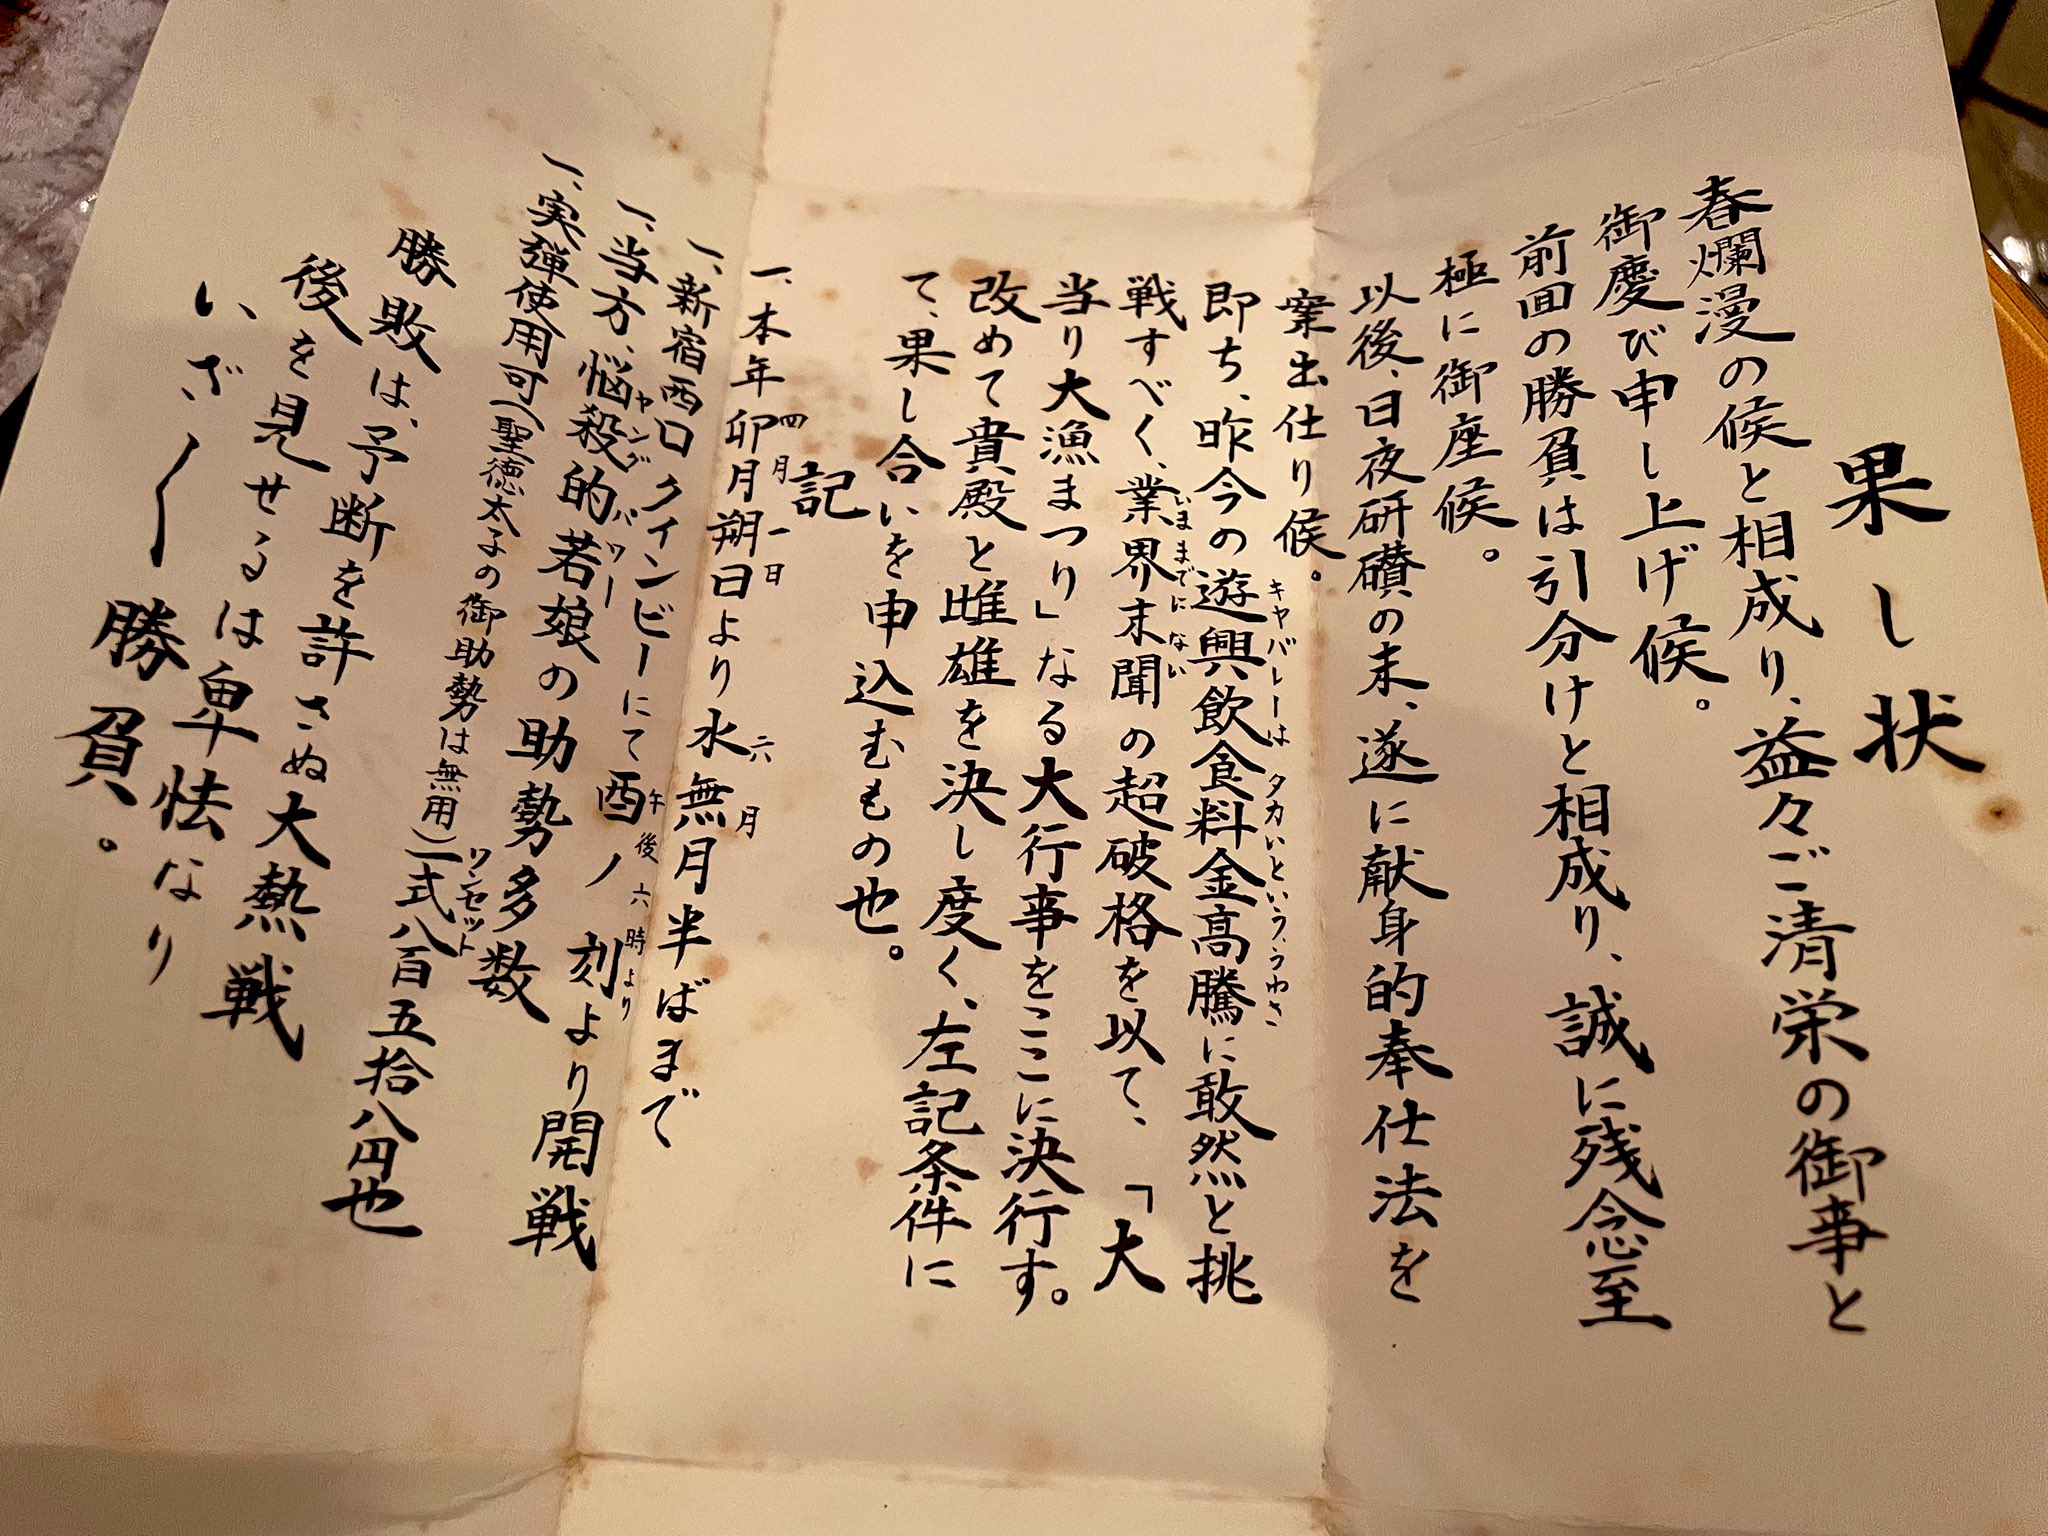 果し状
春爛漫の候と相成り、益々ご清栄の御事と
御慶び申し上げ候。
前回の勝負は引分けと相成り、誠に残念至
極に御座候。
以後、日夜研鑚の末、遂に献身的奉仕法を
案出仕り候。
キャバレーは タカいという、うわさ
即ち、昨今の遊興飲食料金高騰に敢然と挑
いままでにない
戦すべく、業界末聞の超破格を以て、「大
当り大漁まつり」なる大行事をここに決行す。
改めて貴殿と雌雄を決し度く、左記条件に
て、果し合いを申込むもの也。
記
四月一日 六月
一、本年卯月朔日より水無月半ばまで
午後六時より
一、新宿西口クインビーにて酉ノ刻より開戦
ヤングパワー
一、当方、悩殺的若娘の助勢多数
ワンセット
一、実弾使用可(聖徳太子の御助勢は無用)一式八百五拾八円也
勝敗は、予断を許さぬ大熱戦
後を見せるは卑怯なり
いざ〱勝負。